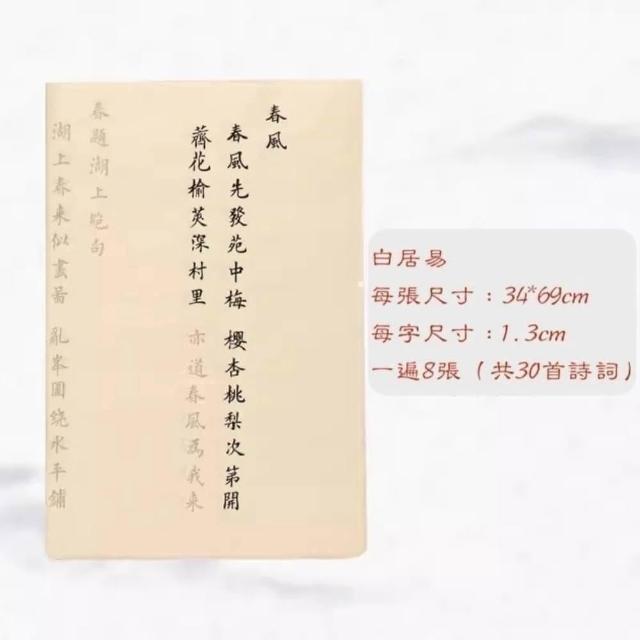 春風
春風先發苑中梅 櫻杏桃梨次第開
薺花榆莢深村里 亦道春風為我来
春題湖上绝句
湖上春来似畫啚 亂峯圍绕水平鋪
白居易
每張尺寸：34*69cm
每字尺寸：1.3cm
一遍8張（共30首詩詞）